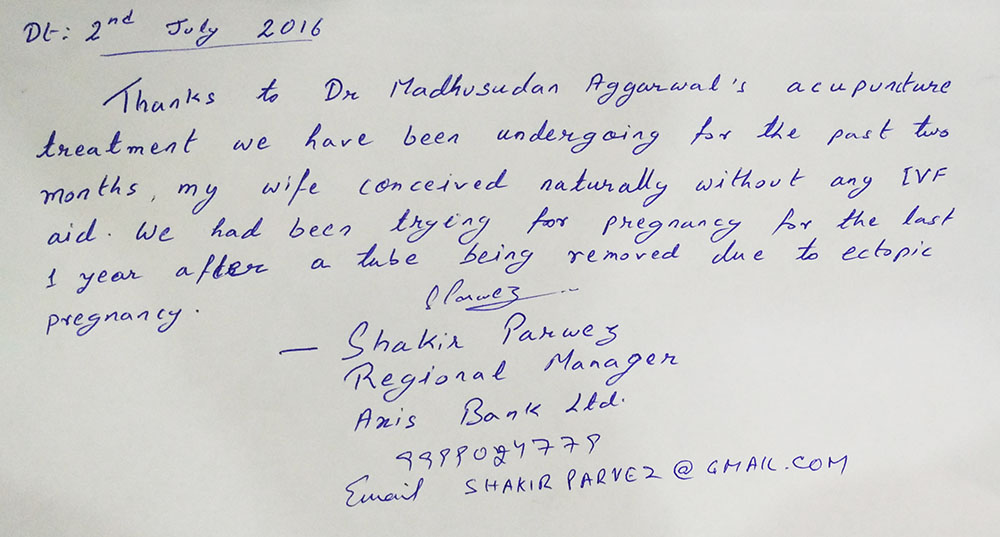 Dt: 2nd July 2016
Thanks to Dr Madhusudan Aggarwal's acupuncture
treatment we have been undergoing for the past two
months, my wife conceived naturally without any IVF
aid. We had been trying for pregnancy for the last
1 year after a tube being removed due to ectopic
pregnancy.
SParwez
— Shakir Parwez
Regional Manager
Axis Bank Ltd.
Email SHAKIR PARVEZ@GMAIL.COM